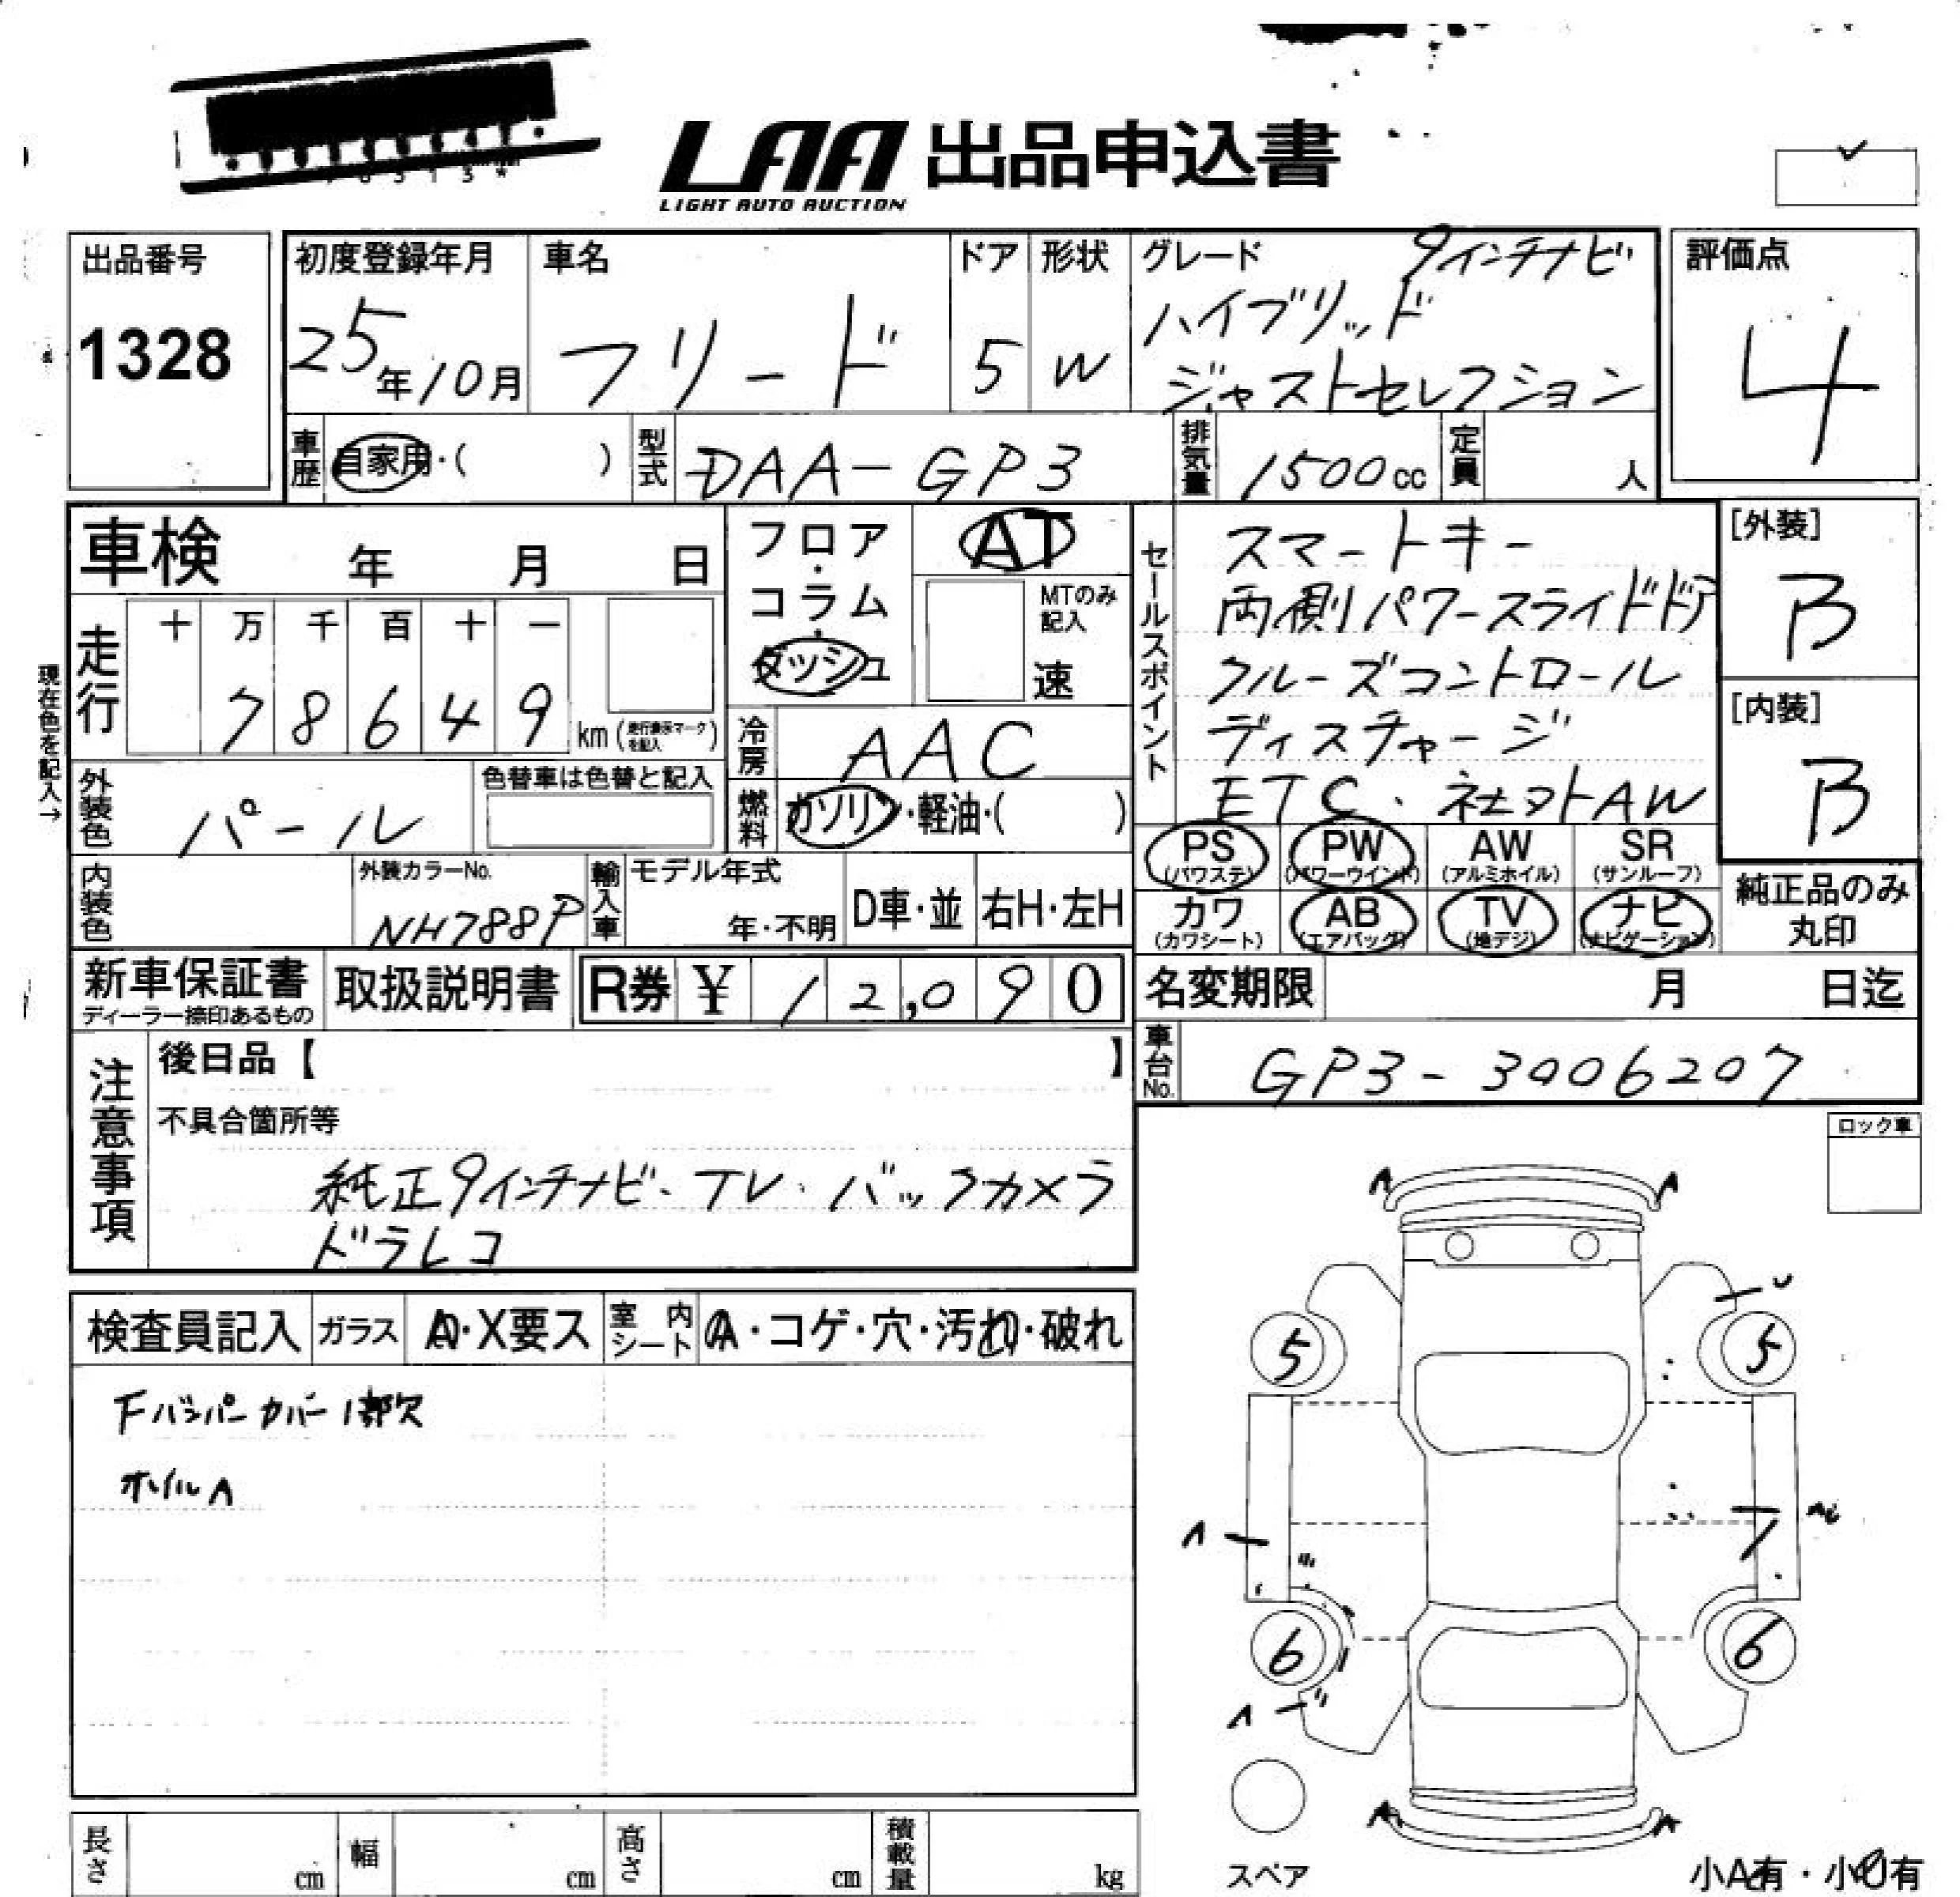 LAA 出品申込書
LIGHT AUTO AUCTION
出品番号
1328
初度登録年月
25年10月
車名
フリード
ドア
5
形状
W
グレード
9インチナビ
ハイブリッド
ジャストセレクション
評価点
4
車歴
自家用・( )
型式
DAA-GP3
排気量
1500cc
定員
人
車検 年 月 日
フロア・コラム・ダッシュ
AT
MTのみ記入
速
セールスポイント
スマートキー
両側パワースライドドア
クルーズコントロール
ディスチャージ
ETC、社外AW
[外装]
B
[内装]
B
現在色を記入→
走行
十 万 千 百 十 一
7 8 6 4 9 km
(走行表示マークを記入)
冷房
AAC
燃料
ガソリン・軽油・( )
外装色
パール
色替車は色替と記入
内装色
外装カラーNo.
NH788P
輸入車
モデル年式
年・不明
D車・並
右H・左H
PS
(パワステ)
PW
(パワーウインド)
AW
(アルミホイル)
SR
(サンルーフ)
カワ
(カワシート)
AB
(エアバッグ)
TV
(地デジ)
ナビ
(ナビゲーション)
純正品のみ
丸印
新車保証書
ディーラー捺印あるもの
取扱説明書
R券 ¥ 12,090
名変期限 月 日迄
車台No.
GP3-3006207
注意事項
後日品【 】
不具合箇所等
純正9インチナビ、TV、バックカメラ
ドラレコ
ロック車
検査員記入
ガラス
A・X要ス
室内シート
A・コゲ・穴・汚れ・破れ
Fバンパーカバー1部欠
ホイルA
A A
5 5
A
6 6
A
A A
スペア
長さ cm
幅 cm
高さ cm
積載量 kg
小A有・小U有